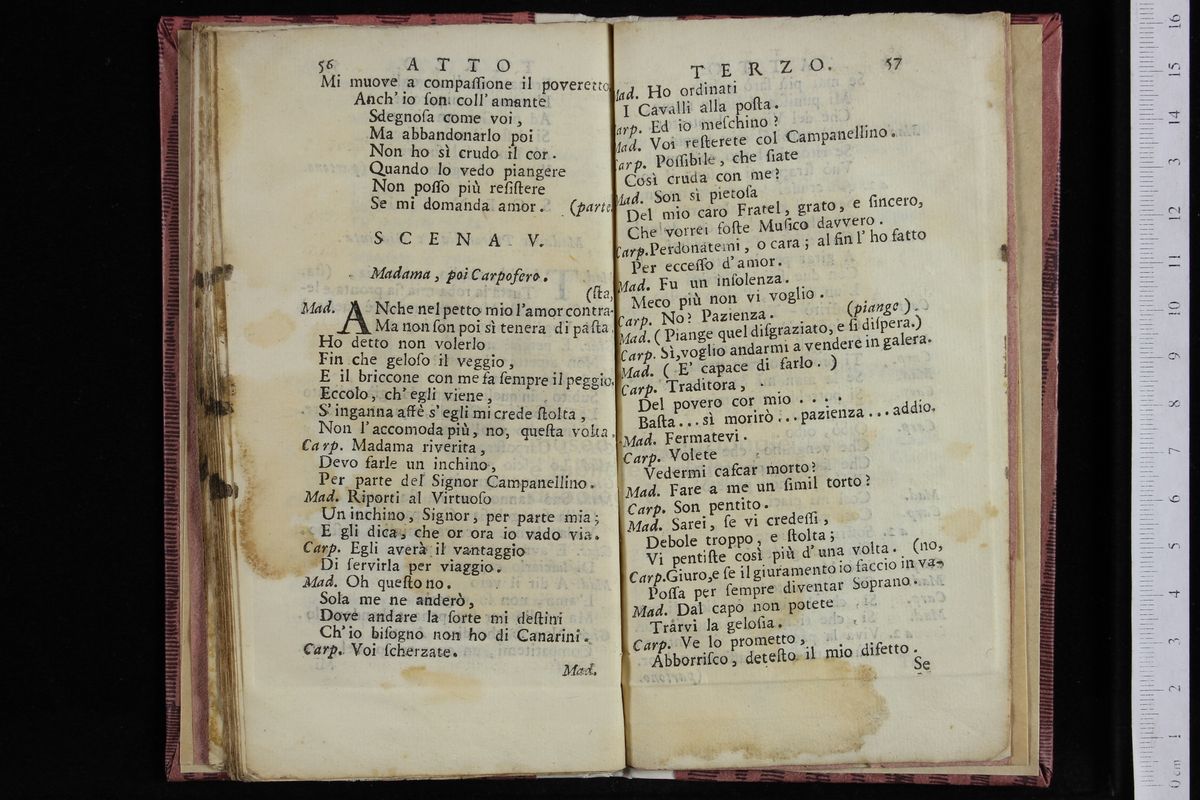 56 ATTO
Mi muove a compaſſione il poveretto
Anch' io ſon coll' amante
Sdegnoſa come voi,
Ma abbandonarlo poi
Non ho sì crudo il cor.
Quando lo vedo piangere
Non poſſo più reſiſtere
Se mi domanda amor. (parte.
SCENA V.
Madama, poi Carpofero.
(ſta,
Mad. ANche nel petto mio l'amor contra-
Ma non ſon poi sì tenera di paſta.
Ho detto non volerlo
Fin che geloſo il veggio,
E il briccone con me fa ſempre il peggio.
Eccolo, ch' egli viene,
S' inganna affè s' egli mi crede ſtolta,
Non l' accomoda più, no, queſta volta.
Carp. Madama riverita,
Devo farle un inchino,
Per parte del Signor Campanellino.
Mad. Riporti al Virtuoſo
Un inchino, Signor, per parte mia;
E gli dica, che or ora io vado via.
Carp. Egli averà il vantaggio
Di ſervirla per viaggio.
Mad. Oh queſto no.
Sola me ne anderò,
Dove andare la ſorte mi deſtini
Ch' io biſogno non ho di Canarini.
Carp. Voi ſcherzate.
Mad.
TERZO. 57
Mad. Ho ordinati
I Cavalli alla poſta.
Carp. Ed io meſchino?
Mad. Voi reſterete col Campanellino.
Carp. Poſſibile, che ſiate
Così cruda con me?
Mad. Son sì pietoſa
Del mio caro Fratel, grato, e ſincero,
Che vorrei foſte Muſico davvero.
Carp. Perdonatemi, o cara; al fin l' ho fatto
Per ecceſſo d' amor.
Mad. Fu un inſolenza.
Meco più non vi voglio.
Carp. No? Pazienza. (piange).
Mad. (Piange quel diſgraziato, e ſi diſpera.)
Carp. Sì, voglio andarmi a vendere in galera.
Mad. (E' capace di farlo.)
Carp. Traditora,
Del povero cor mio....
Baſta...sì morirò...pazienza...addio.
Mad. Fermatevi.
Carp. Volete
Vedermi caſcar morto?
Mad. Fare a me un ſimil torto?
Carp. Son pentito.
Mad. Sarei, ſe vi credeſſi,
Debole troppo, e ſtolta;
Vi pentiſte così più d' una volta. (no,
Carp. Giuro, e ſe il giuramento io faccio in va-
Poſſa per ſempre diventar Soprano.
Mad. Dal capo non potete
Trarvi la geloſia.
Carp. Ve lo prometto,
Abborriſco, deteſto il mio difetto.
Se
16
15
14
13
12
11
10
9
8
7
6
5
4
3
2
1
0 cm